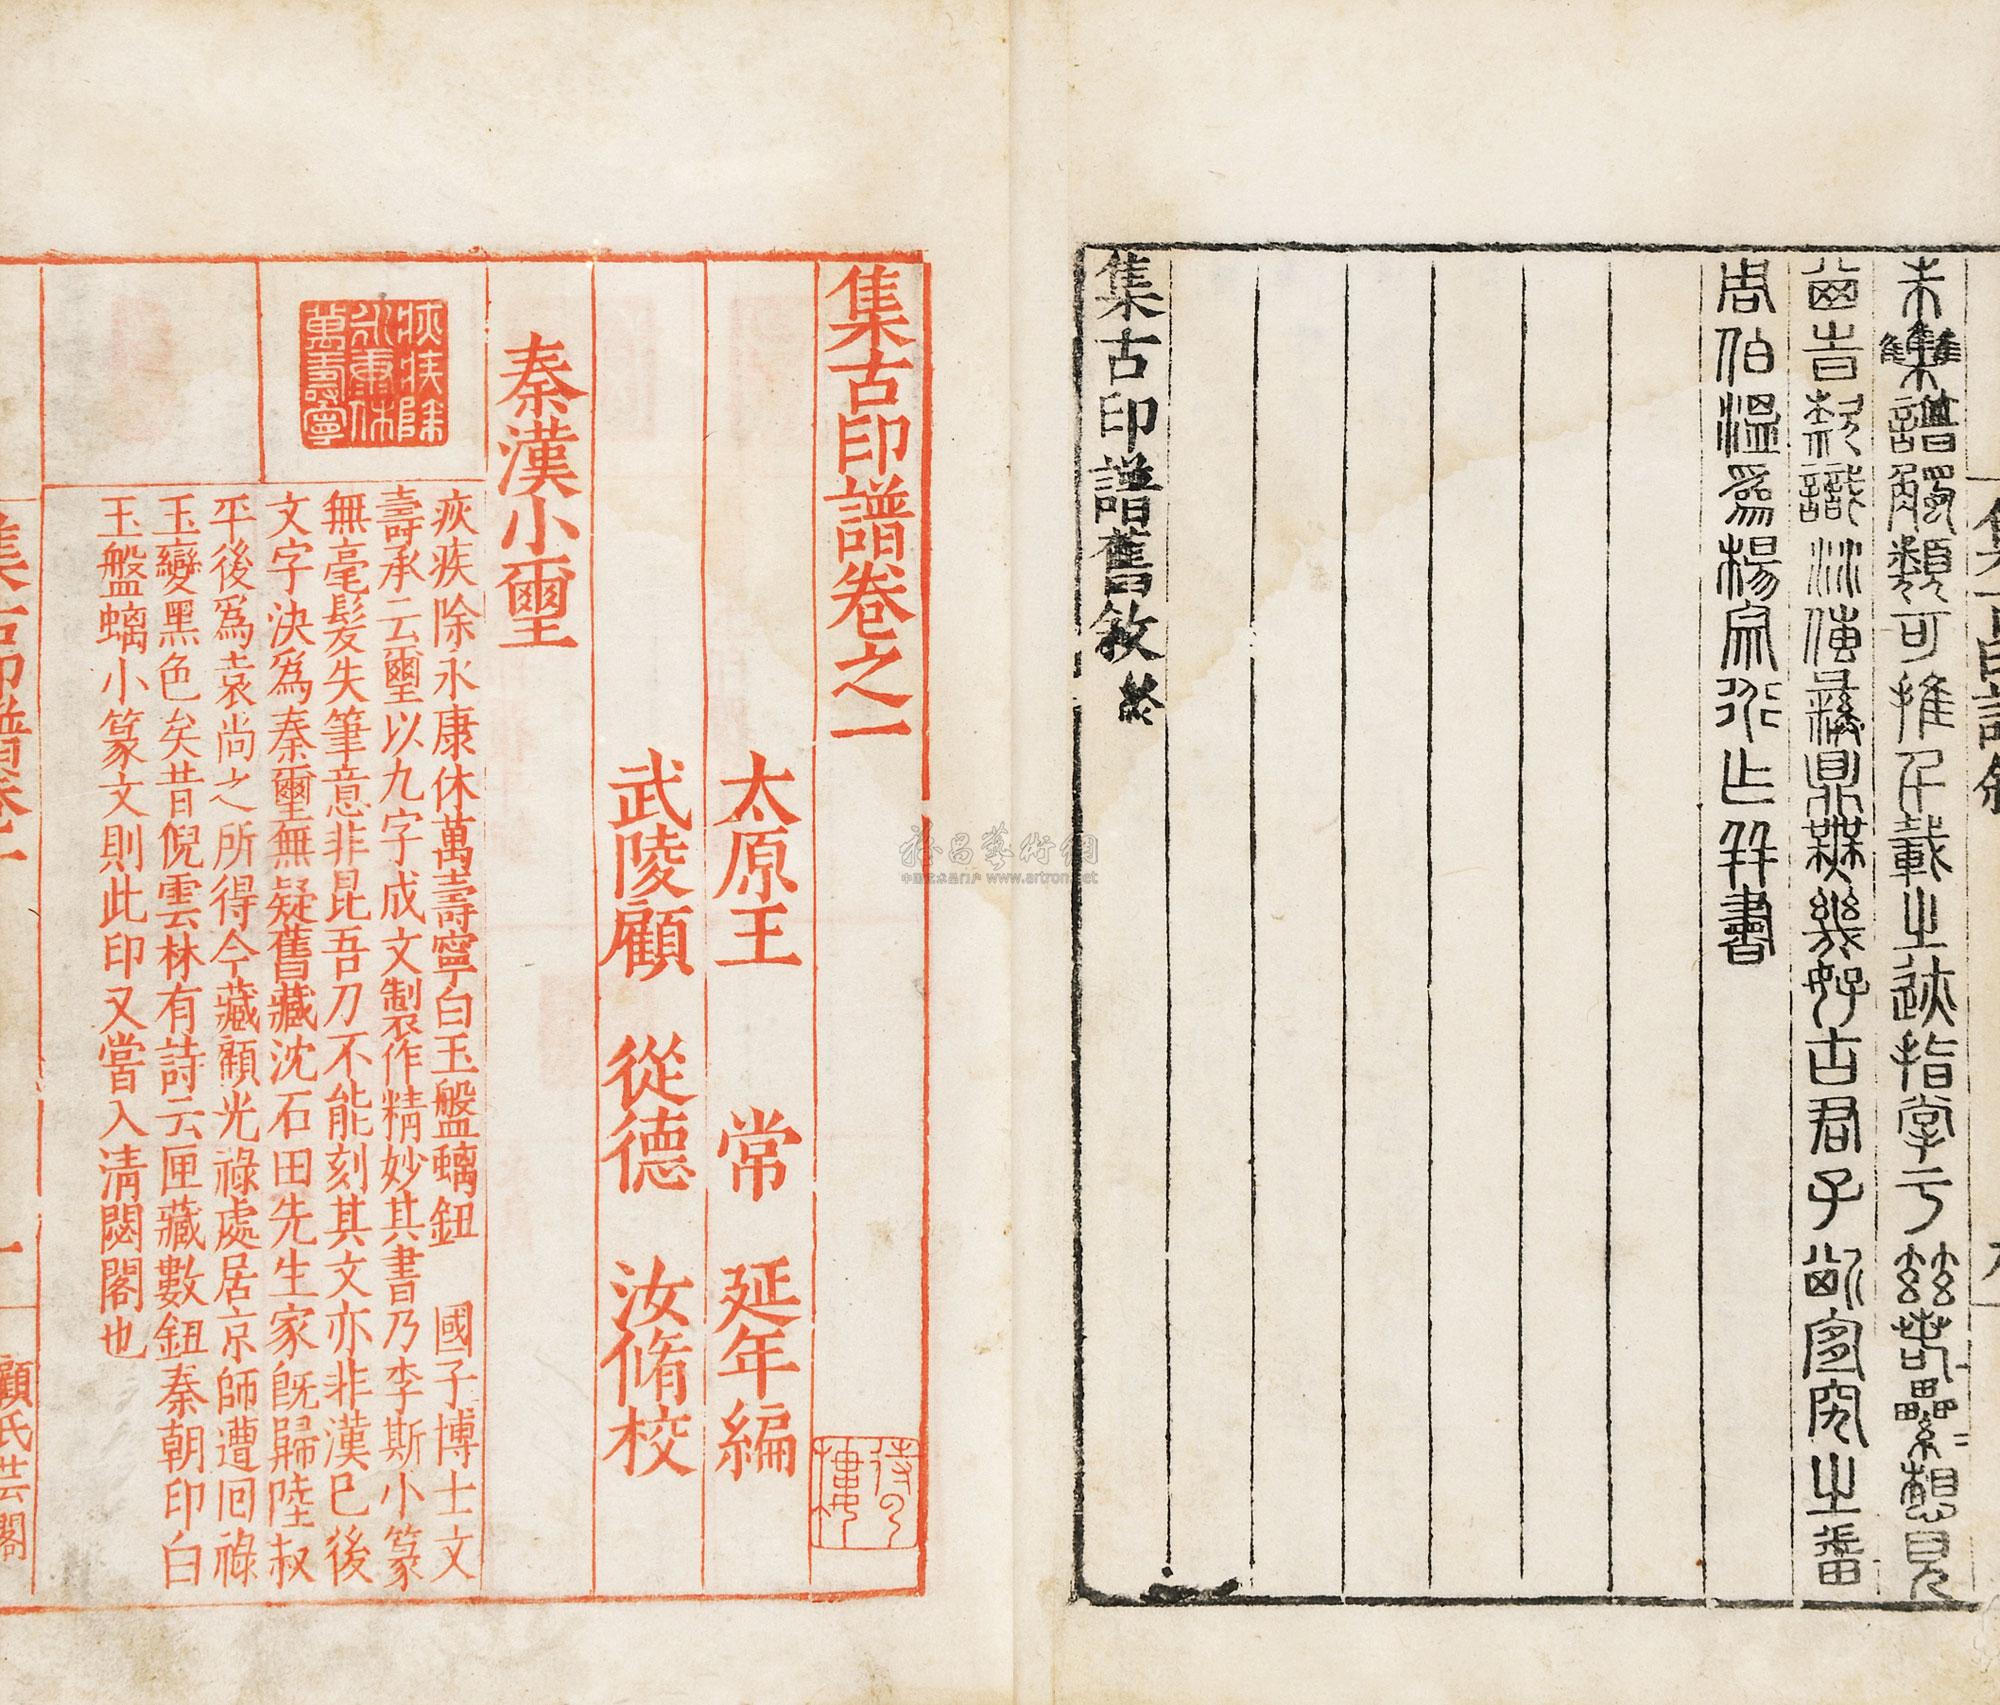 未雧譜觸類可推千載之迹指掌亏茲昔纍想見
齒昔款識沇演彝鼎無幾好古君子
周伯溫爲楊宗道作幷書
集古印譜舊敘終
集古印譜卷之一
太原王常延年編
武陵顧從德汝脩校
秦漢小璽
疢疾除永康休萬壽寧
疢疾除永康休萬壽寧白玉盤螭鈕 國子博士文
壽承云璽以九字成文製作精妙其書乃李斯小篆
無毫髮失筆意非昆吾刀不能刻其文亦非漢已後
文字決爲秦璽無疑舊藏沈石田先生家旣歸陸叔
平後爲袁尚之所得今藏顧光祿處居京師遭囘祿
玉變黑色矣昔倪雲林有詩云匣藏數鈕秦朝印白
玉盤螭小篆文則此印又嘗入淸閟閣也
集古印譜卷一
一
顧氏芸閣
www.artron.net